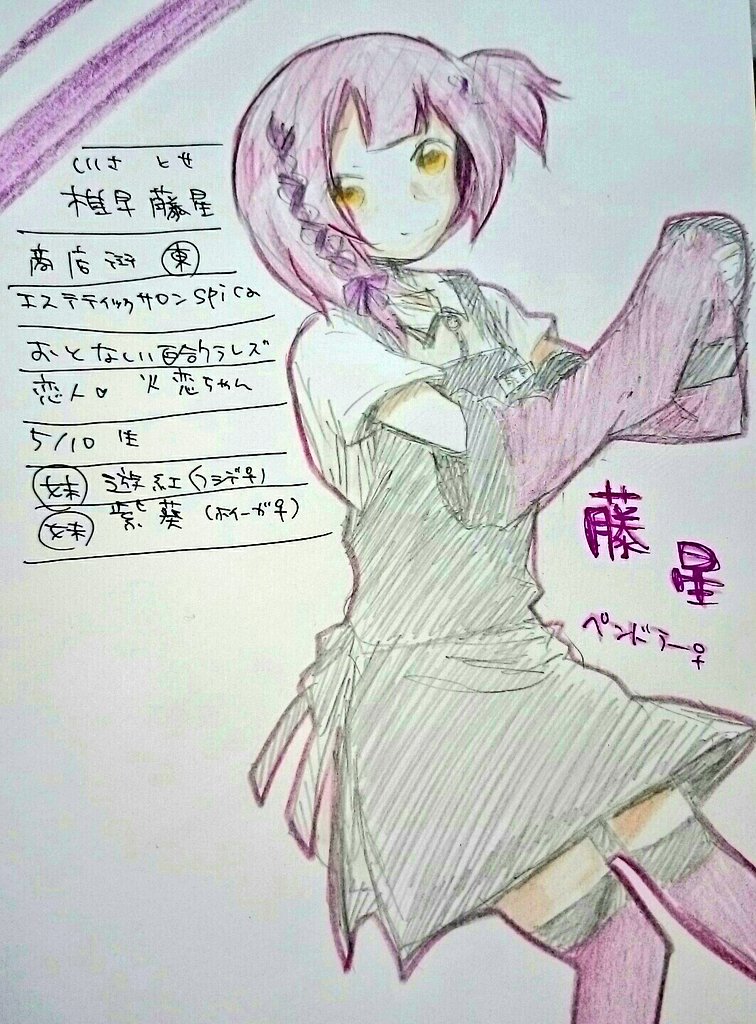 しいさ とせ
椎早 藤星
商店街 東
エステティックサロン spica
おとなしい百合クラレズ
恋人♡ 火恋ちゃん
5/10 生
妹 遊紅(フシデ♀)
妹 紫葵 (ホイーガ♀)
藤
星
ペンドラー♀